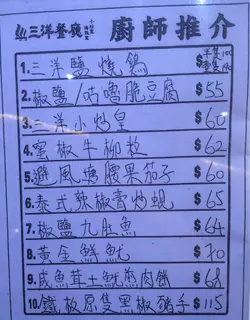 三洋餐廳 小炒皇 海鮮 廚師推介
1. 三洋鹽燒鴿 半隻 $100
2. 椒鹽/咕嚕脆豆腐 $55
3. 三洋小炒皇 $60
4. 蜜椒牛柳粒 $62
5. 避風塘腰果茄子 $60
6. 泰式辣椒膏炒蜆 $65
7. 椒鹽九肚魚 $64
8. 黃金鮮魷 $70
9. 咸魚茸土魷煎肉餅 $68
10. 鐵板原隻黑椒豬手 $115